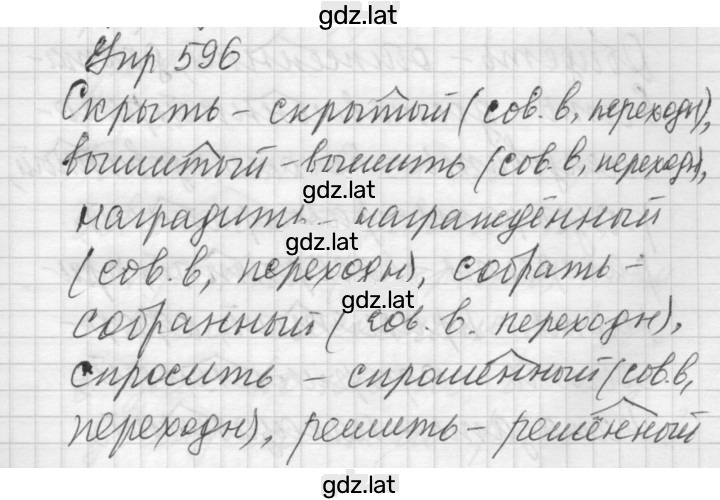 gdz.lat
Упр 596
Скрыть - скрытый (сов. в, переходн),
вышитый - вышить (сов. в, переходн),
gdz.lat
наградить - награждённый
gdz.lat
(сов. в, переходн), собрать -
gdz.lat
собранный (сов. в. переходн),
спросить - спрошенный (сов. в,
переходн), решить - решённый
gdz.lat